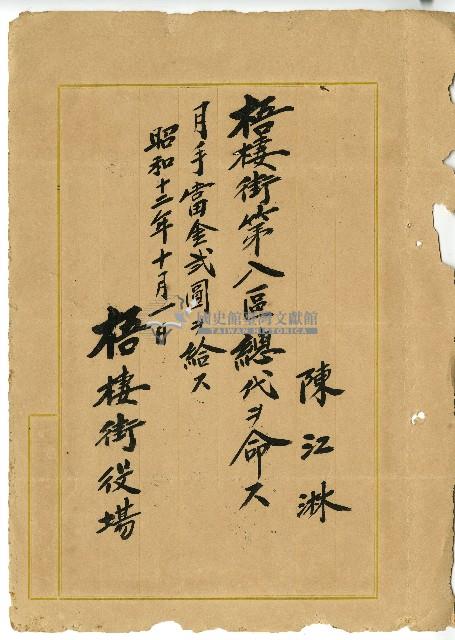 陳江淋
梧棲街第八區總代ヲ命ス
月手當金貳圓ヲ給ス
昭和十二年十月一日
梧棲街役場
國史館臺灣文獻館
TAIWAN HISTORICA